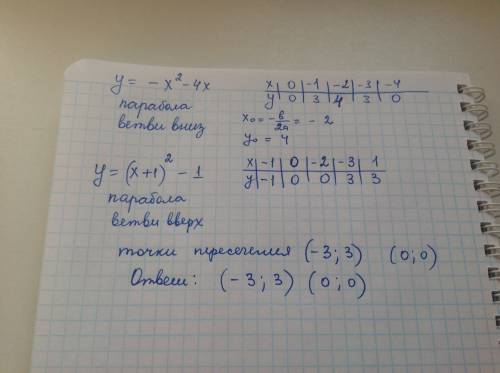 y = - x² - 4x
x | 0 | -1 | -2 | -3 | -4
y | 0 | 3 | 4 | 3 | 0
парабола
ветви вниз
x₀ = -в/2a = - 2
y₀ = 4
y = (x+1)² - 1
x | -1 | 0 | -2 | -3 | 1
y | -1 | 0 | 0 | 3 | 3
парабола
ветви вверх
точки пересечения (-3; 3) (0; 0)
Ответ: (-3; 3) (0; 0)